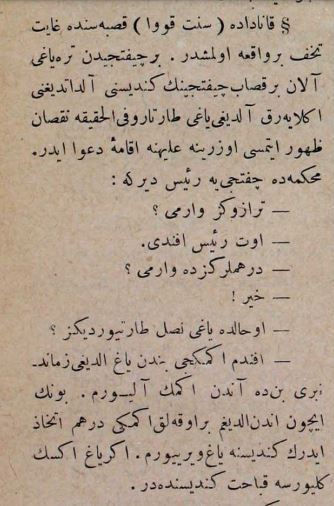 § قاناداده ( سنت قووا ) قصبه‌سنده غایت
تحف برواقعه اولمشدر . برچیفتجیدن تره‌یاغی
آلان برقصاب چیفتجینك كندیسنی آلداتدیغنی
اكلایه‌رق آلدیغی یاغی طارتار وفی‌الحقیقه نقصان
ظهور ایتمسی اوزرینه علیهنه اقامهٔ دعوا ایدر.
محكمه‌ده چفتجی‌یه رئیس دیركه :
— ترازوكز وارمی ؟
— اوت رئیس افندی.
— درهملركزده وارمی ؟
— خیر !
— اوحالده یاغی نصل طارتیوردیكز ؟
— افندم اكمكجی بندن یاغ الدیغی زماند‌
نبری بن‌ده آندن اكمك آلیـورم . بونك
ایچون اندن‌الدیغم براوقه‌لق‌اكمكی درهم اتخاذ
ایدرك كندیسنه یاغ ویرییورم . اكریاغ اكسك
كلیورسه قباحت كندیسنده‌در .